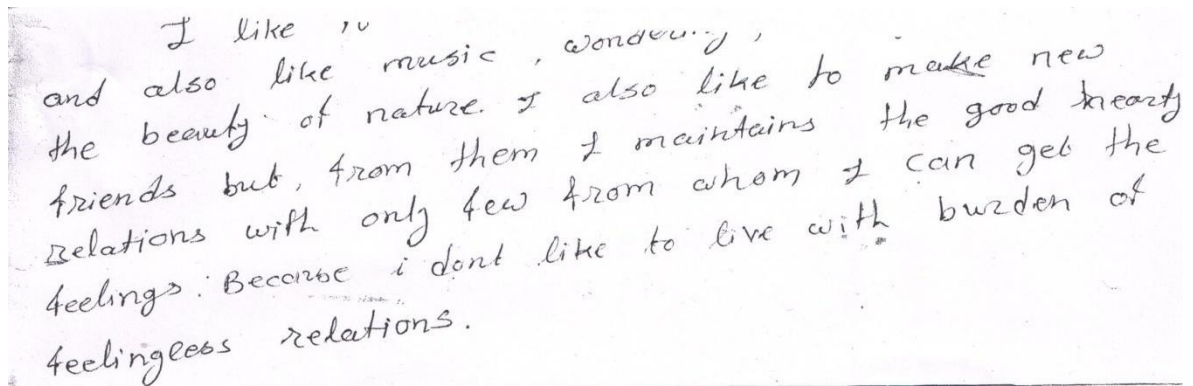 I like
and also like music , wondering ,
the beauty of nature. I also like to make new
friends but, from them I maintains the good hearty
relations with only few from whom I can get the
feelings. Because i dont like to live with burden of
feelingless relations.